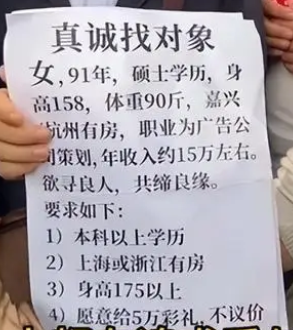 真诚找对象
女,91年,硕士学历,身
高158,体重90斤,嘉兴
杭州有房,职业为广告公
司策划,年收入约15万左右。
欲寻良人,共缔良缘。
要求如下:
1)本科以上学历
2)上海或浙江有房
3)身高175以上
4)愿意给5万彩礼,不议价